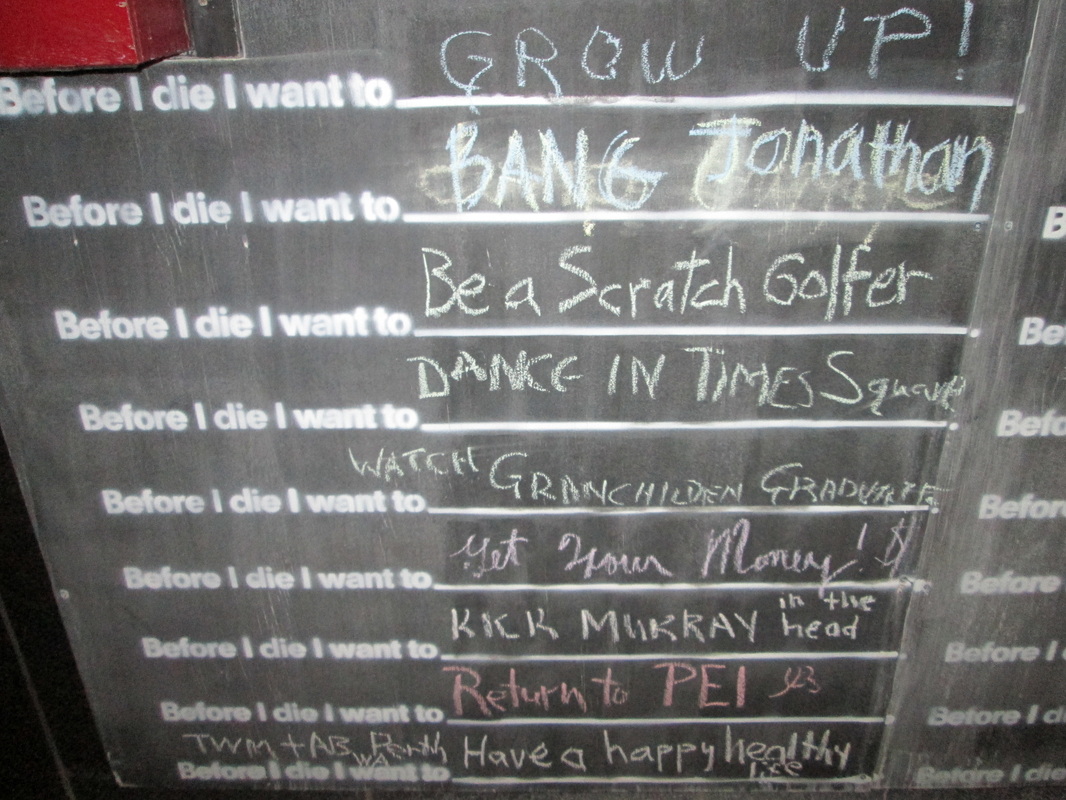 Before I die I want to GROW UP!
Before I die I want to BANG Jonathan
Before I die I want to Be a Scratch Golfer
Before I die I want to DANCE IN TIMES Square
Before I die I want to WATCH GRANCHILDEN GRADUATE
Before I die I want to Get Your Money! $
Before I die I want to KICK MURRAY in the head
Before I die I want to Return to PEI
TWM + AB Perth WA
Before I die I want to Have a happy healthy life
B
Be
Befo
Befor
Before
Before I
Before I di
Before I die